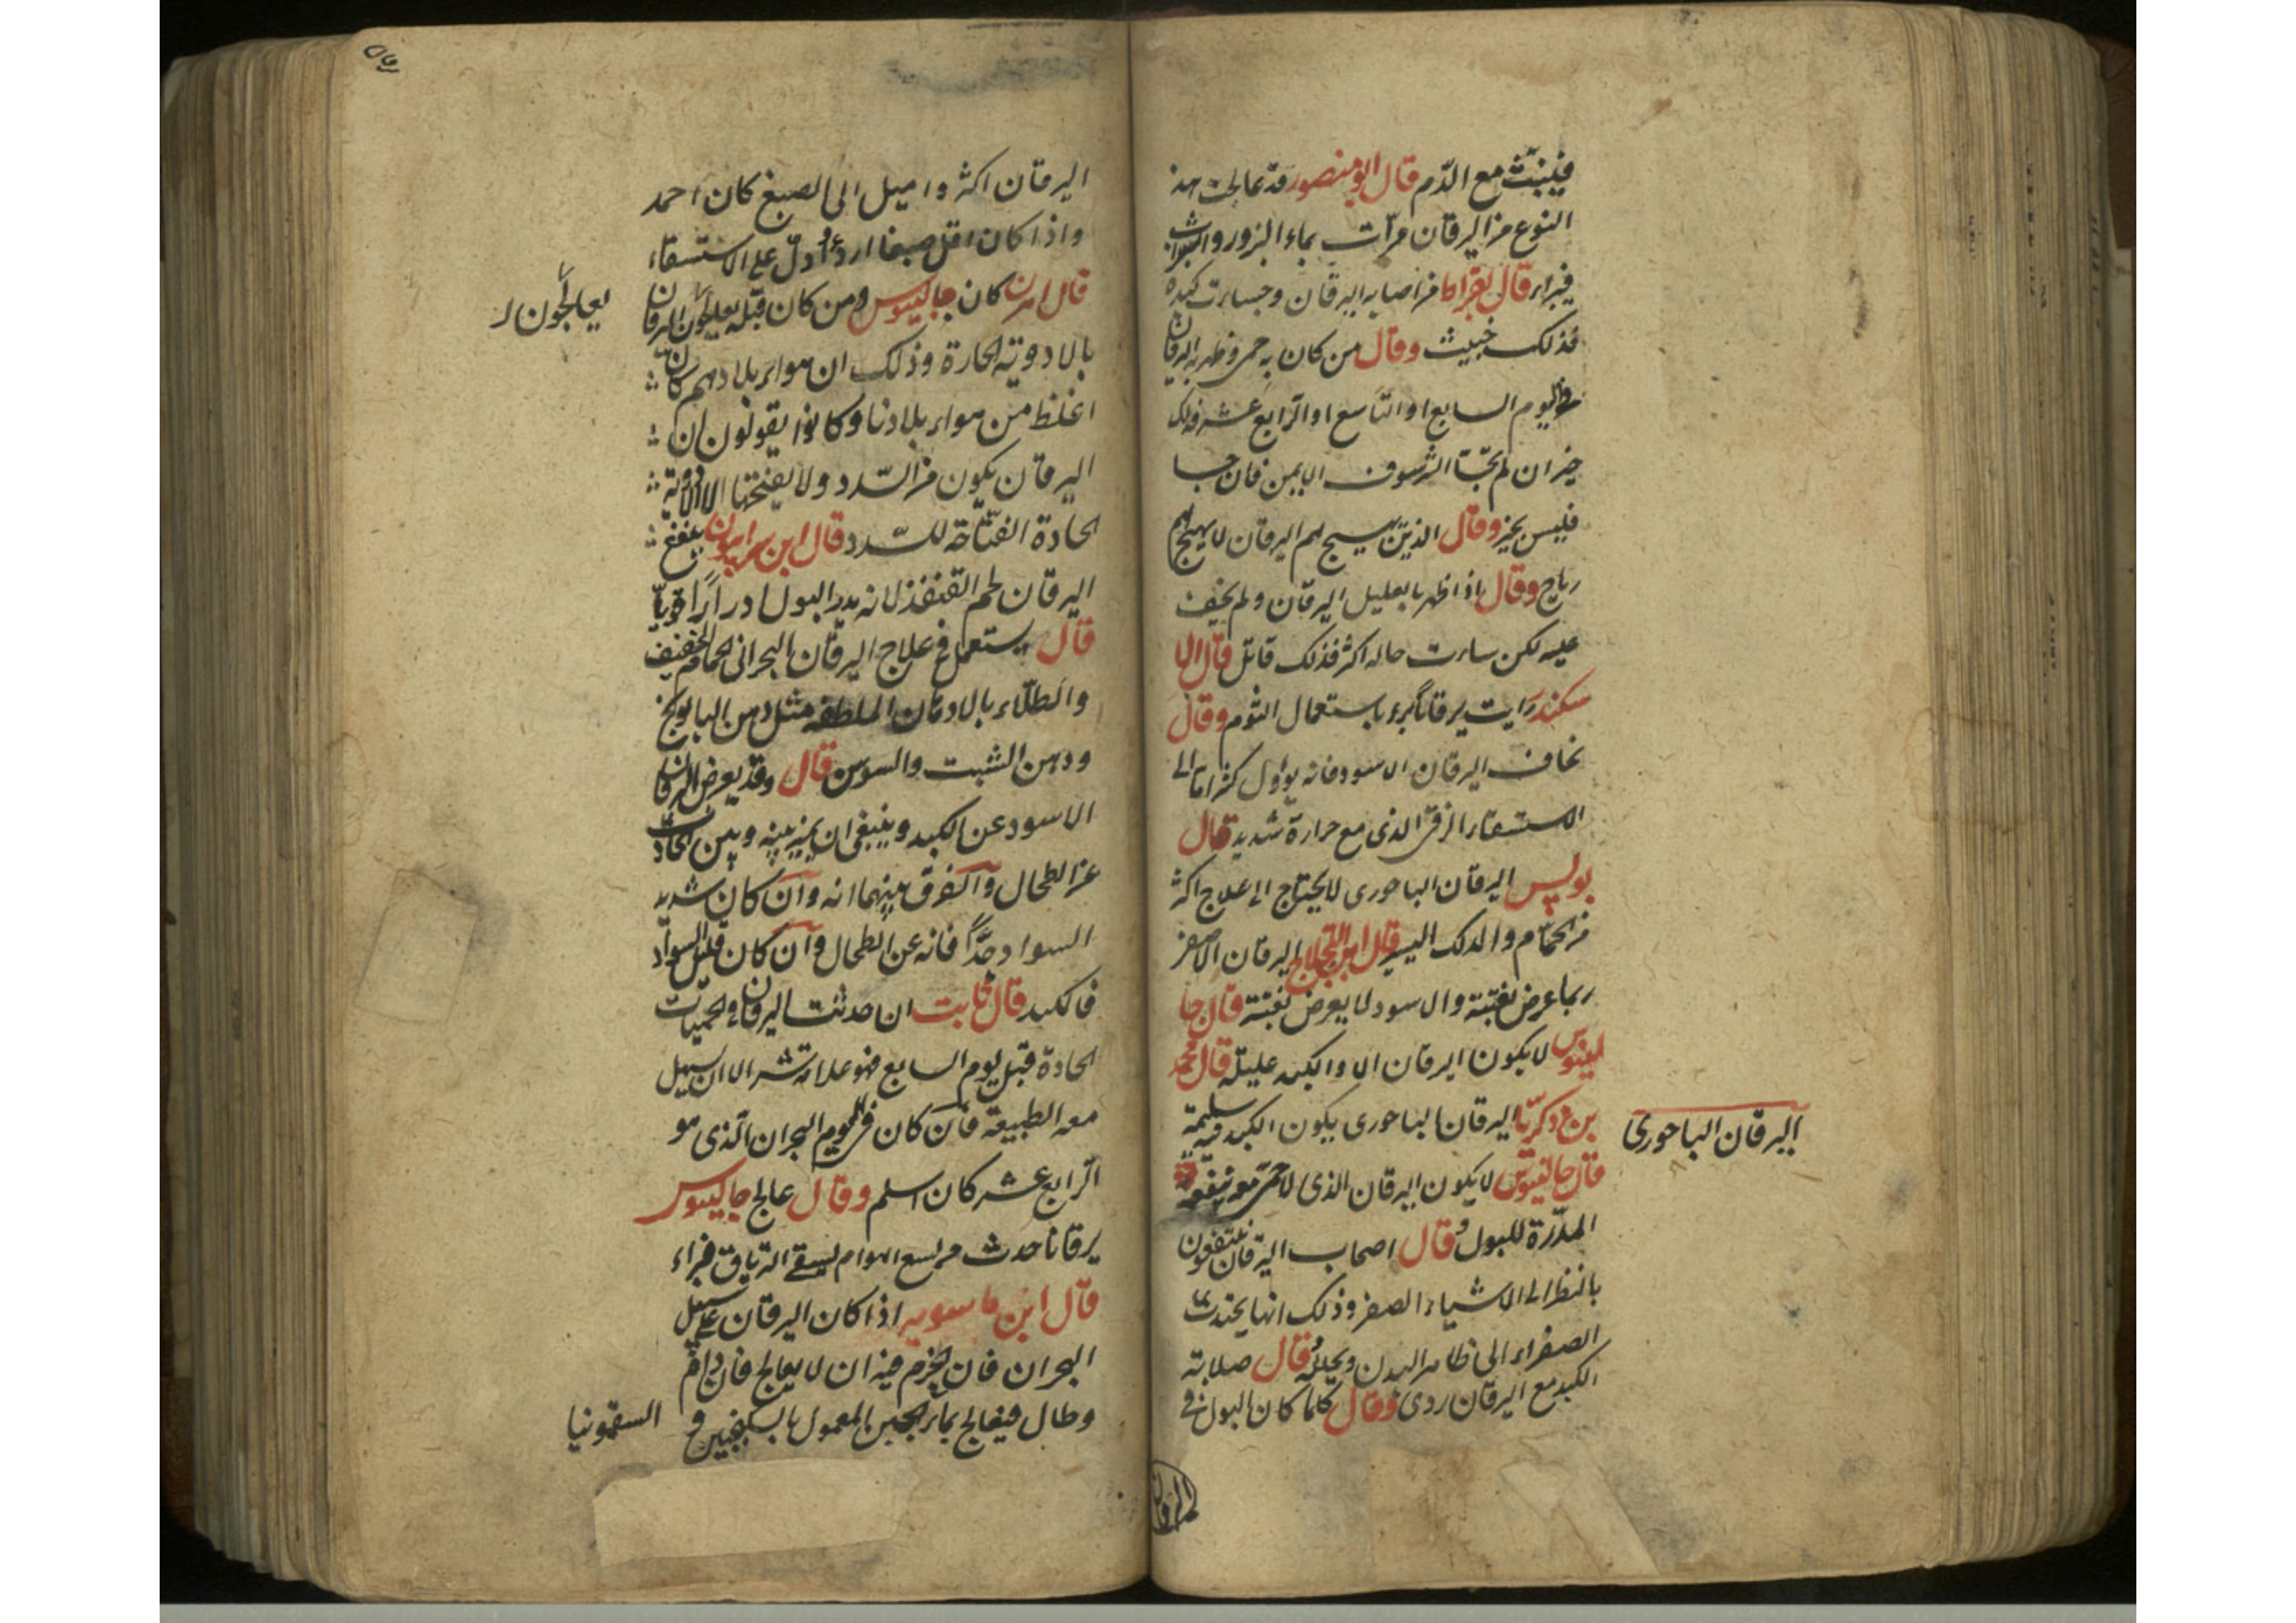 فينبث مع الدّم قال ابو منصور قد عالجت هذ
النوع من اليرقان مرّات بماء البزور والشراب
فبراء قال بقراط من اصابه اليرقان وجسات كبده
فذلك خبيث وقال من كان به حمى وظهر به اليرقان
في اليوم السابع او التاسع او الرّابع عشر فذلك
خير ان لم يجسّا الشرسوف الايمن فان جسا
فليس بخير وقال الذين يهيج لهم اليرقان لا يهيج لهم
رياح وقال اذا ظهر بالعليل اليرقان ولم يخف
عليه لكن ساءت حاله اكثر فذلك قاتل قال الا
سكندر رايت يرقانا برء باستعمال الثوم وقال
نخاف اليرقان الاسود فانه يؤول كثيرا ما الى
الاستسقاء الزقي الذى مع حرارة شديد قال
بولس اليرقان الباحورى لا يحتاج الى علاج اكثر
من الحمّام والدلك اليسير قال ابن اللجلاج اليرقان الاصفر
ربما عرض بغتة والاسود لا يعرض بغتة قال جا
لينوس لا يكون اليرقان الا والكبد عليلة قال محمد
بن زكريّا اليرقان الباحورى يكون الكبد فيه سليمة
اليرقان الباحورى
قال جالينوس لا يكون اليرقان الذى لا حمّى معه
المدّرة للبول وقال اصحاب اليرقان ينتفعون
بالنظر الى الاشياء الصفر وذلك انها يجتذب
الصفراء الى ظاهر البدن ويحلله وقال صلابة
الكبد مع اليرقان ردى وقال كلما كان البول في
اليرقان
اليرقان اكثر واميل الى الصبغ كان احمد
واذا كان اقل صبغا اردء ودلّ على الاستسقاء
قال اهرن كان جالينوس ومن كان قبله يعالجون اليرقان
يعالجون
بالادوية الحارة وذلك ان هواء بلادهم كان
اغلظ من هواء بلادنا وكانوا يقولون ان
اليرقان يكون من السّدد ولا يفتحها الا الادوية
الحادة الفتّاحة للسّدد قال ابن سرابيون ينفع
اليرقان لحم القنفذ لانه يدر البول ادرارًا قويّا
قال يستعمل في علاج اليرقان البحرانى الحمام الخفيف
والطلاء بالادهان الملطفه مثل دهن البابونج
ودهن الشبت والسوسن قال وقد يعرض اليرقان
الاسود عن الكبد وينبغى ان يميز بينه وبين الحادث
عن الطحال والفرق بينهما انه وان كان شديد
السواد جدًّا فانه عن الطحال وان كان قليل السواد
فالكبد قال ثابت ان حدثت اليرقان في الحميّات
الحادة قبل يوم السابع فهو علامة شر الا ان يسهل
معه الطبيعة فان كان في اليوم البحران الّذى هو
الرّابع عشر كان اسلم وقال عالج جالينوس
يرقانا حدث من لسع الهوام بسقى الترياق فبراء
قال ابن ماسويه اذا كان اليرقان على سبيل
البحران فان الحزم فيه ان لا يعالج فان دام
وطال فيعالج بماء الجبن المعمول بالسكنجبين و
السقمونيا